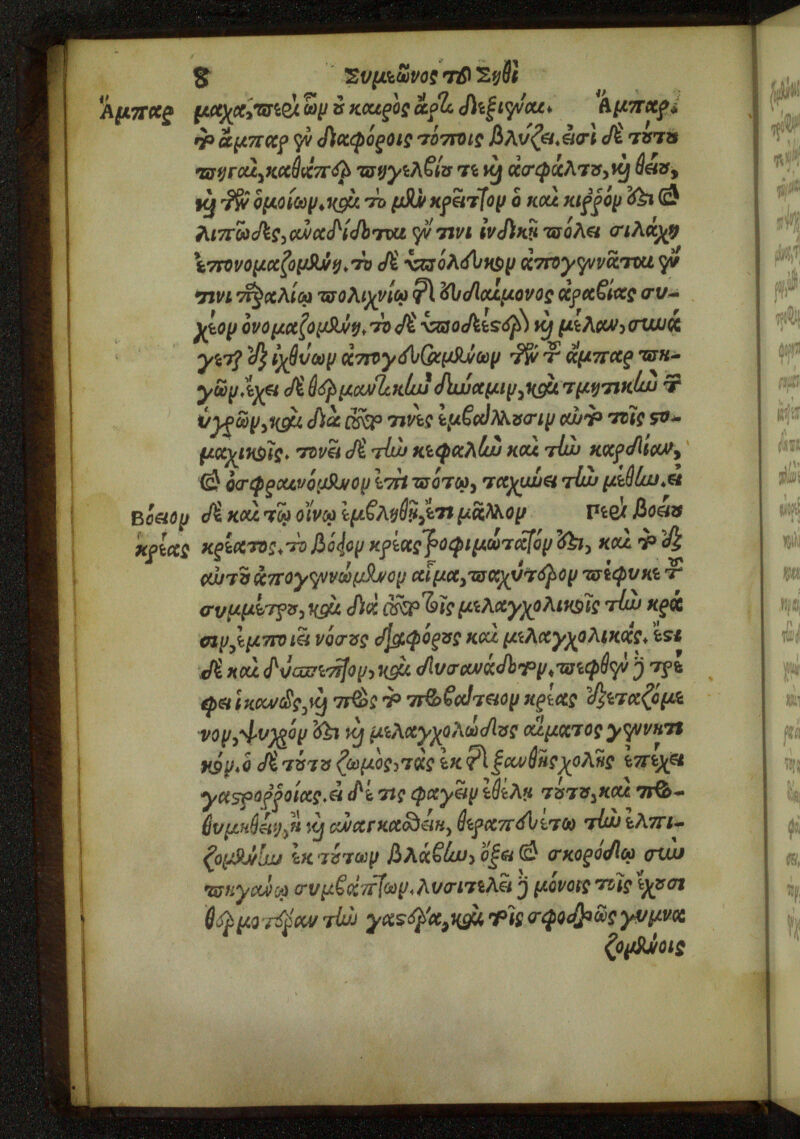 8 Συμεῶνος τοῦ Σηθὶ
Ἄμπαρ μαχα, περὶ ὧν ὁ καιρὸς ἄρτι διεξιγναι. Ἄμπαρ.
τὸ ἄμπαρ ἐν διαφόροις τόποις βλύζει. εἰσὶ δὲ τούτου
πηγαὶ, καθάπερ πηγεληβίου τε καὶ ἀσφάλτου, καὶ θείου,
καὶ τῶν ὁμοίων. καὶ τὸ μὲν κρεῖττον ὁ καὶ κιρρόν ἐστι καὶ
λιπῶδες, ἀναδίδοται ἔν τινι ἰνδικῇ πόλει σιλάχητ
ἐπονομαζομένῃ. τὸ δὲ ὑπόλευκον ἀπογεννᾶται ἔν
τινι παραλίῳ πολιχνίῳ τῆς εὐδαίμονος ἀραβίας συ-
χεον ὀνομαζομένῃ. τὸ δὲ ὑποδέεστερον καὶ μέλαν, συνά
γεται ἐξ ἰχθύων ἀπογευσαμένων τῶν τοῦ ἄμπαρ πη-
γῶν. ἔχει δὲ θερμαντικὴν δύναμιν, καὶ τμητικὴν τῶν
ὑγρῶν, καὶ διὰ τοῦτό τινες ἐμβάλλουσιν αὐτὸ τοῖς στο-
μαχικοῖς. τονεῖ δὲ τὴν κεφαλὴν καὶ τὴν καρδίαν,
καὶ ὀσφραινόμενον ἐπὶ πότῳ, ταχύνει τὴν μέθην. εἰ
Βόειον δὲ καὶ τῷ οἴνῳ ἐμβληθῇ, ἔτι μᾶλλον Περὶ βοείου
κρέας κρέατος. τὸ βόειον κρέας τροφιμώτατόν ἐστι, καὶ τὸ ἐξ
αὐτοῦ ἀπογεννώμενον αἷμα, παχύτερον πέφυκε τοῦ
συμμέτρου, καὶ διὰ τοῦτο τοῖς μελαγχολικοῖς τὴν κρᾶ
σιν, ἐμποιεῖ νόσους διαφόρους καὶ μελαγχολικάς. ἔστι
δὲ καὶ δύσπεπτον, καὶ δυσανάδοτον. πέφθεν δὲ τρέ
φει ἱκανῶς, καὶ πρὸς τὸ προβάτειον κρέας ἐξεταζόμε
νον, ψυχρόν ἐστι καὶ μελαγχολώδους αἵματος γεννητι
κόν. ὁ δὲ τούτου ζωμὸς, τὰς ἐκ τῆς ξανθῆς χολῆς ἐπέχει
γαστρορροίας. εἰ δέ τις φαγεῖν ἐθέλῃ τούτου, καὶ προ-
θυμηθείη, ἢ καὶ ἀναγκασθείη, θεραπευέτω τὴν ἐλπι-
ζομένην ἐκ τούτων βλάβην, ὄξει καὶ σκορόδῳ σὺν
πηγάνῳ συμβάπτων. λυσιτελεῖ δὲ μόνοις τοῖς ἔχουσι
θερμοτέραν τὴν γαστέρα, καὶ τοῖς σφοδρῶς γυμνα
ζομένοις